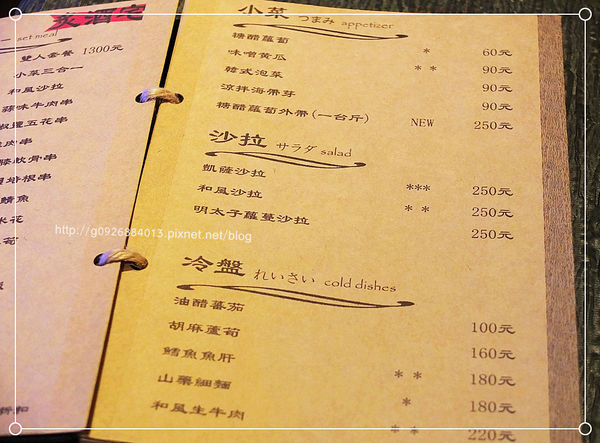 炙酒宅
set meal
雙人套餐 1300元
小菜三合一
和風沙拉
蒜味牛肉串
五花串
肉串
軟骨串
培根串
鯖魚
米花
小菜 つまみ appetizer
糖醋蘿蔔 * 60元
味噌黃瓜 * * 90元
韓式泡菜 90元
涼拌海帶芽 90元
糖醋蘿蔔外帶(一台斤) NEW 250元
沙拉 サラダ salad
凱薩沙拉 *** 250元
和風沙拉 * * 250元
明太子蘿蔓沙拉 250元
http://g0926884013.pixnet.net/blog
冷盤 れいさい cold dishes
油醋蕃茄 100元
胡麻蘆筍 160元
鱈魚魚肝 * * 180元
山藥細麵 * 180元
和風生牛肉 * * 220元